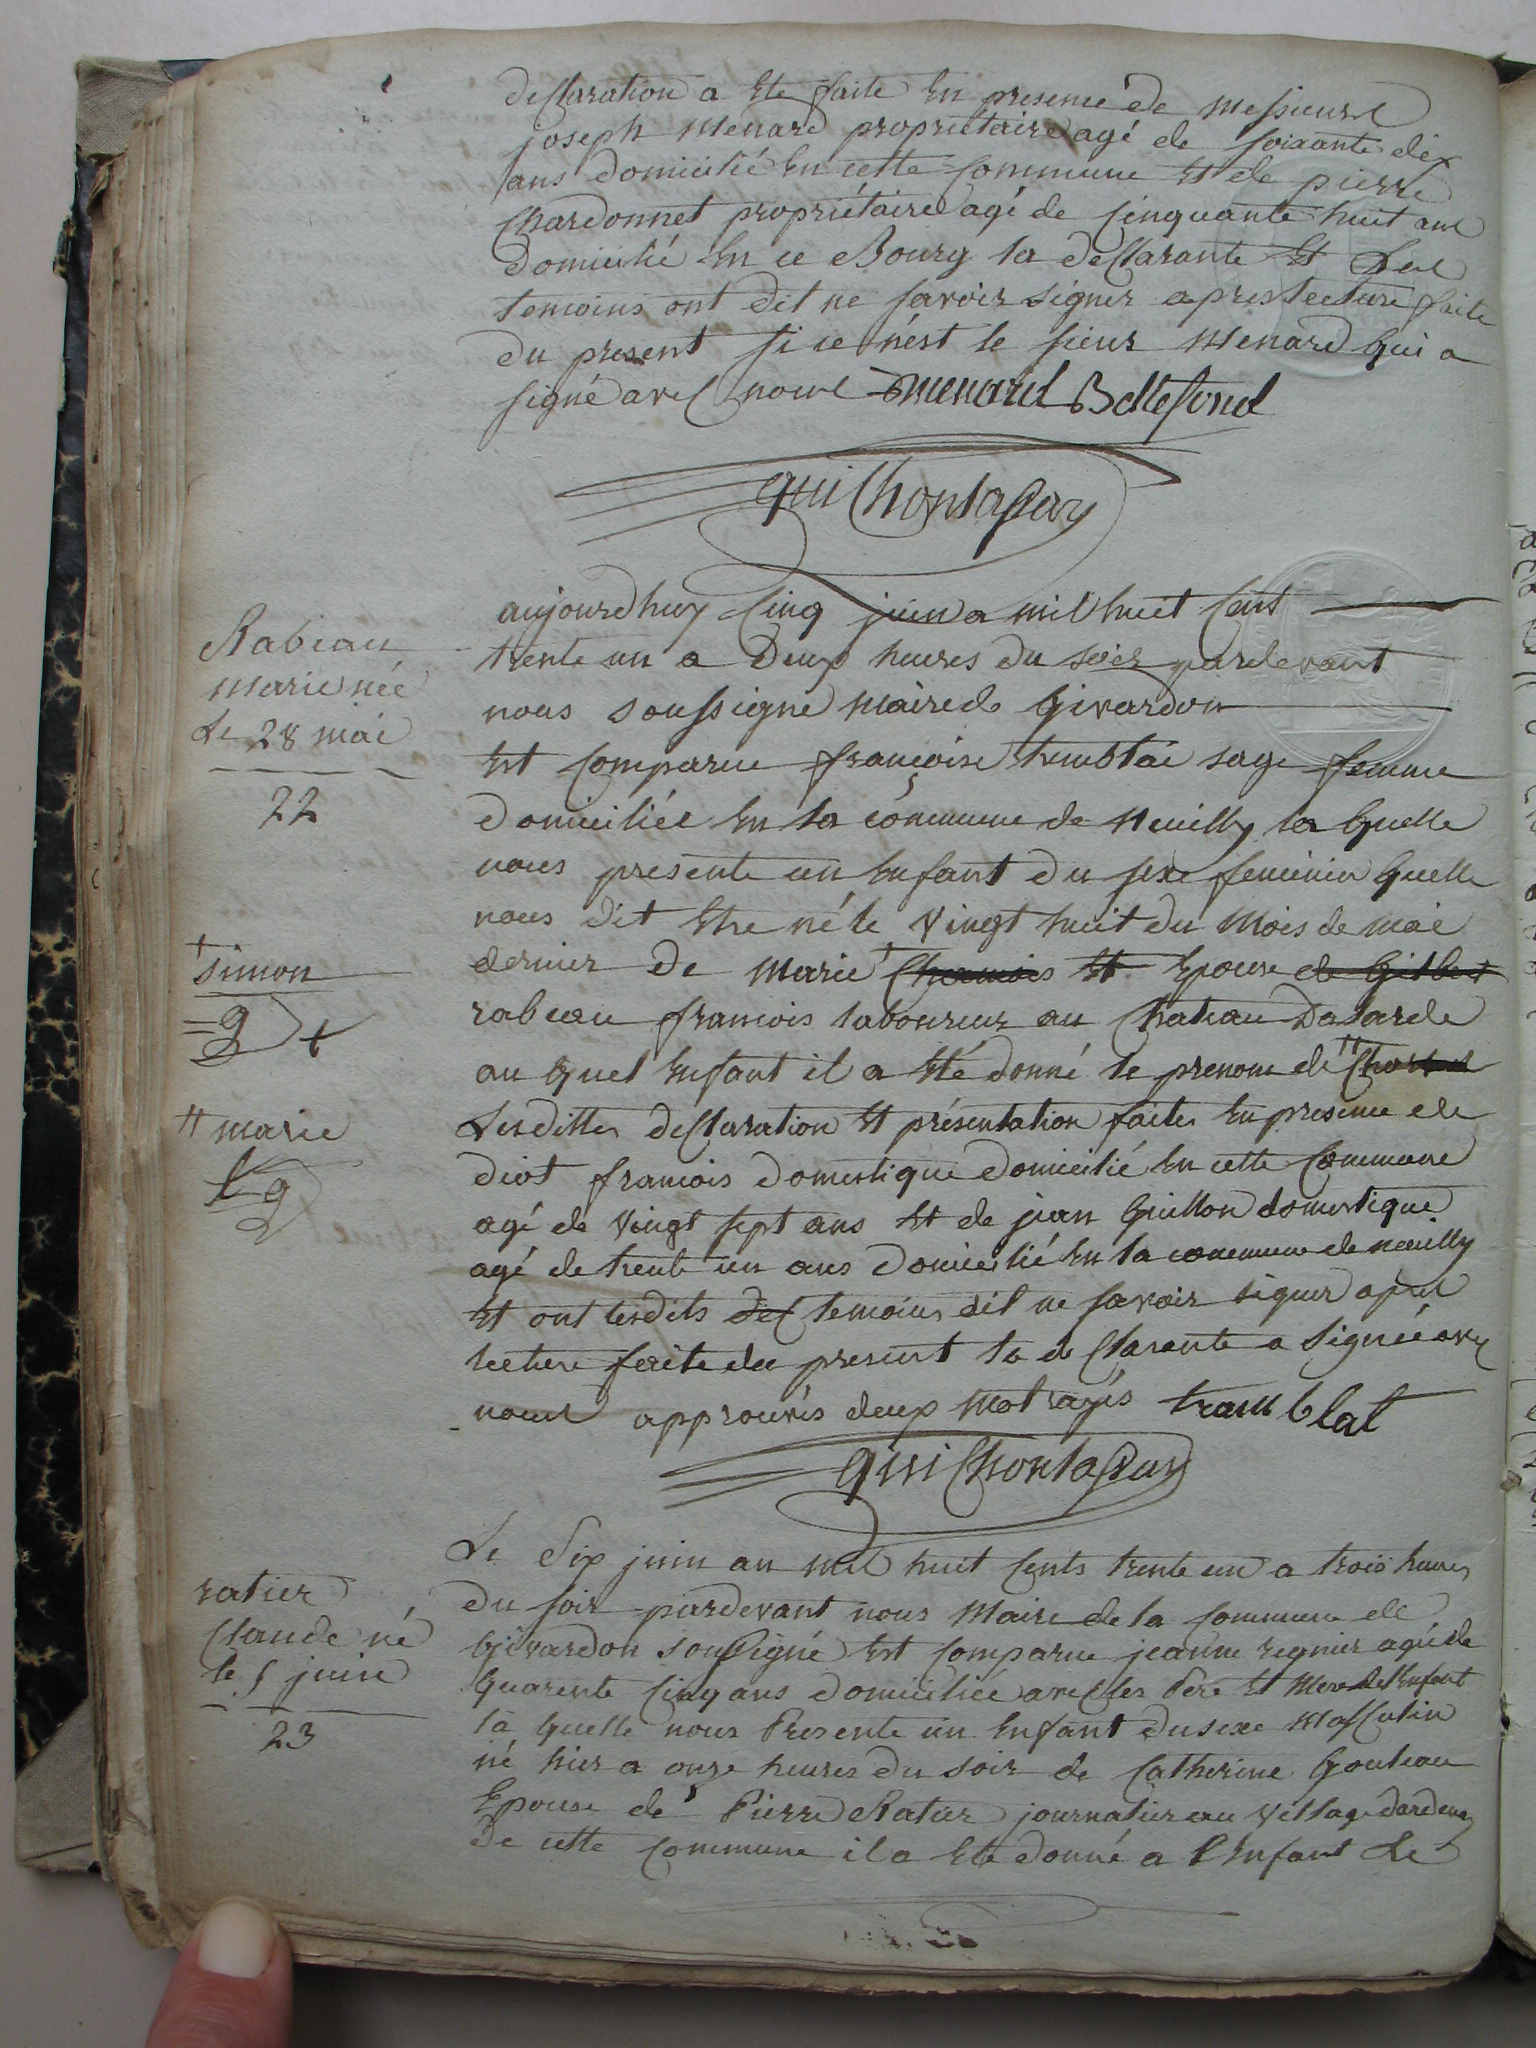 declaration a été faite en presence de messieurs
joseph menard propriétaire agé de soixante dix
ans domicilié en cette commune et de pierre
chardonnet propriétaire agé de cinquante huit ans
domicilié en ce Bourg la declarante et les
temoins ont dit ne savoir signer apres lecture faite
du present si ce n'est le sieur menard qui a
signé avec nous menard Bellefond
aujourdhuy cinq juin mil huit cent
Rabeau
trente un a deux heures du soir pardevant
marie née
nous soussigné maire de Givardon
Le 28 mai
est comparue françoise sage femme
22
domiciliée en la commune de neuilly la quelle
nous presente un enfant du sexe feminin quelle
nous dit etre né le vingt huit du mois de mai
† simon
dernier de marie † epouse de Gilbert
g
rabeau francois laboureur au chateau
au quel enfant il a été donné le prenom de
marie
Lesdittes declaration et présentation faites en presence de
diot francois domestique domicilié en cette commune
g
agé de vingt sept ans et de jean Guillon domestique
agé de trente un ans domicilié en la commune de neuilly
et ont lesdits temoins dit ne savoir signer apres
lecture faite du present la declarante a signée avec
nous approuvés deux mot rayés tramblat
Le Six juin an mil huit cents trente un a trois heures
ratier
du soir pardevant nous Maire de la commune de
Claude né
Givardon soussigné est comparue jeanne regnier agée de
le 5 juin
quarente cinq ans domiciliée avec les Pere et Mere de l'enfant
23
la quelle nous Presente un enfant du sexe masculin
né hier a onze heures du soir de Catherine Gouleau
epouse de Pierre Ratier journalier au village
de cette commune il a été donné a l'enfant Le